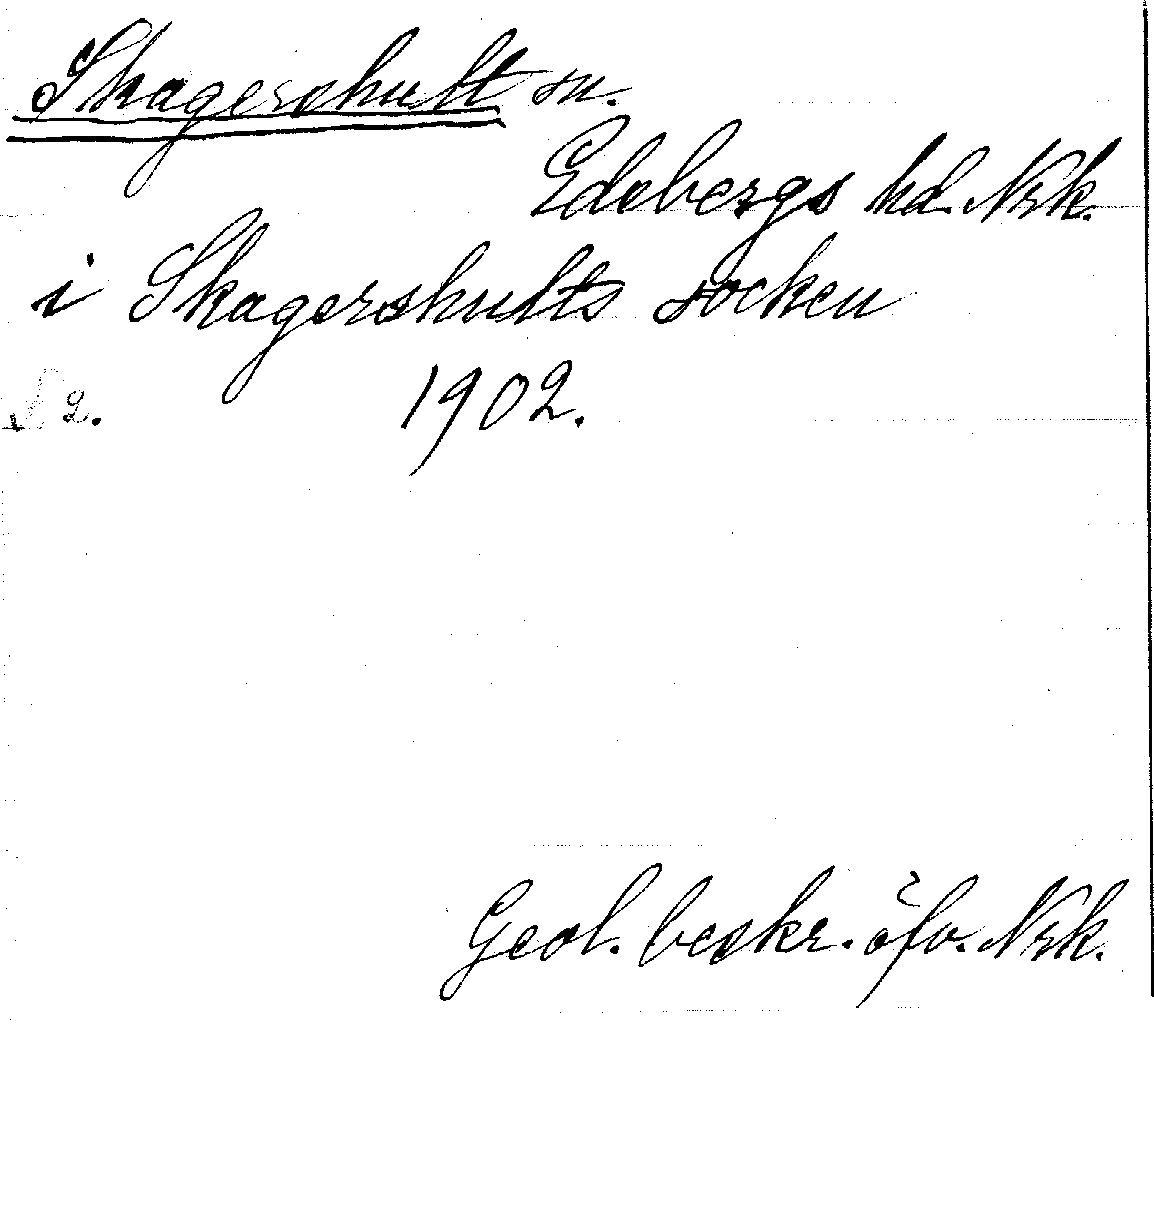 Skagershult sn.
Edsbergs hd. Nrk.
i Skagershults socken
S 2. 1902.
Geol. beskr. öfv. Nrk.